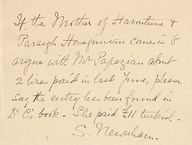 If the Mother of Haroutune &
Parsegh Hovagimian comes in to
argue with Mr Papazian about
2 liras paid in last June, please
say the entry has been found in
Dr C's book. She paid £T1 turkish.
S. Newnham.